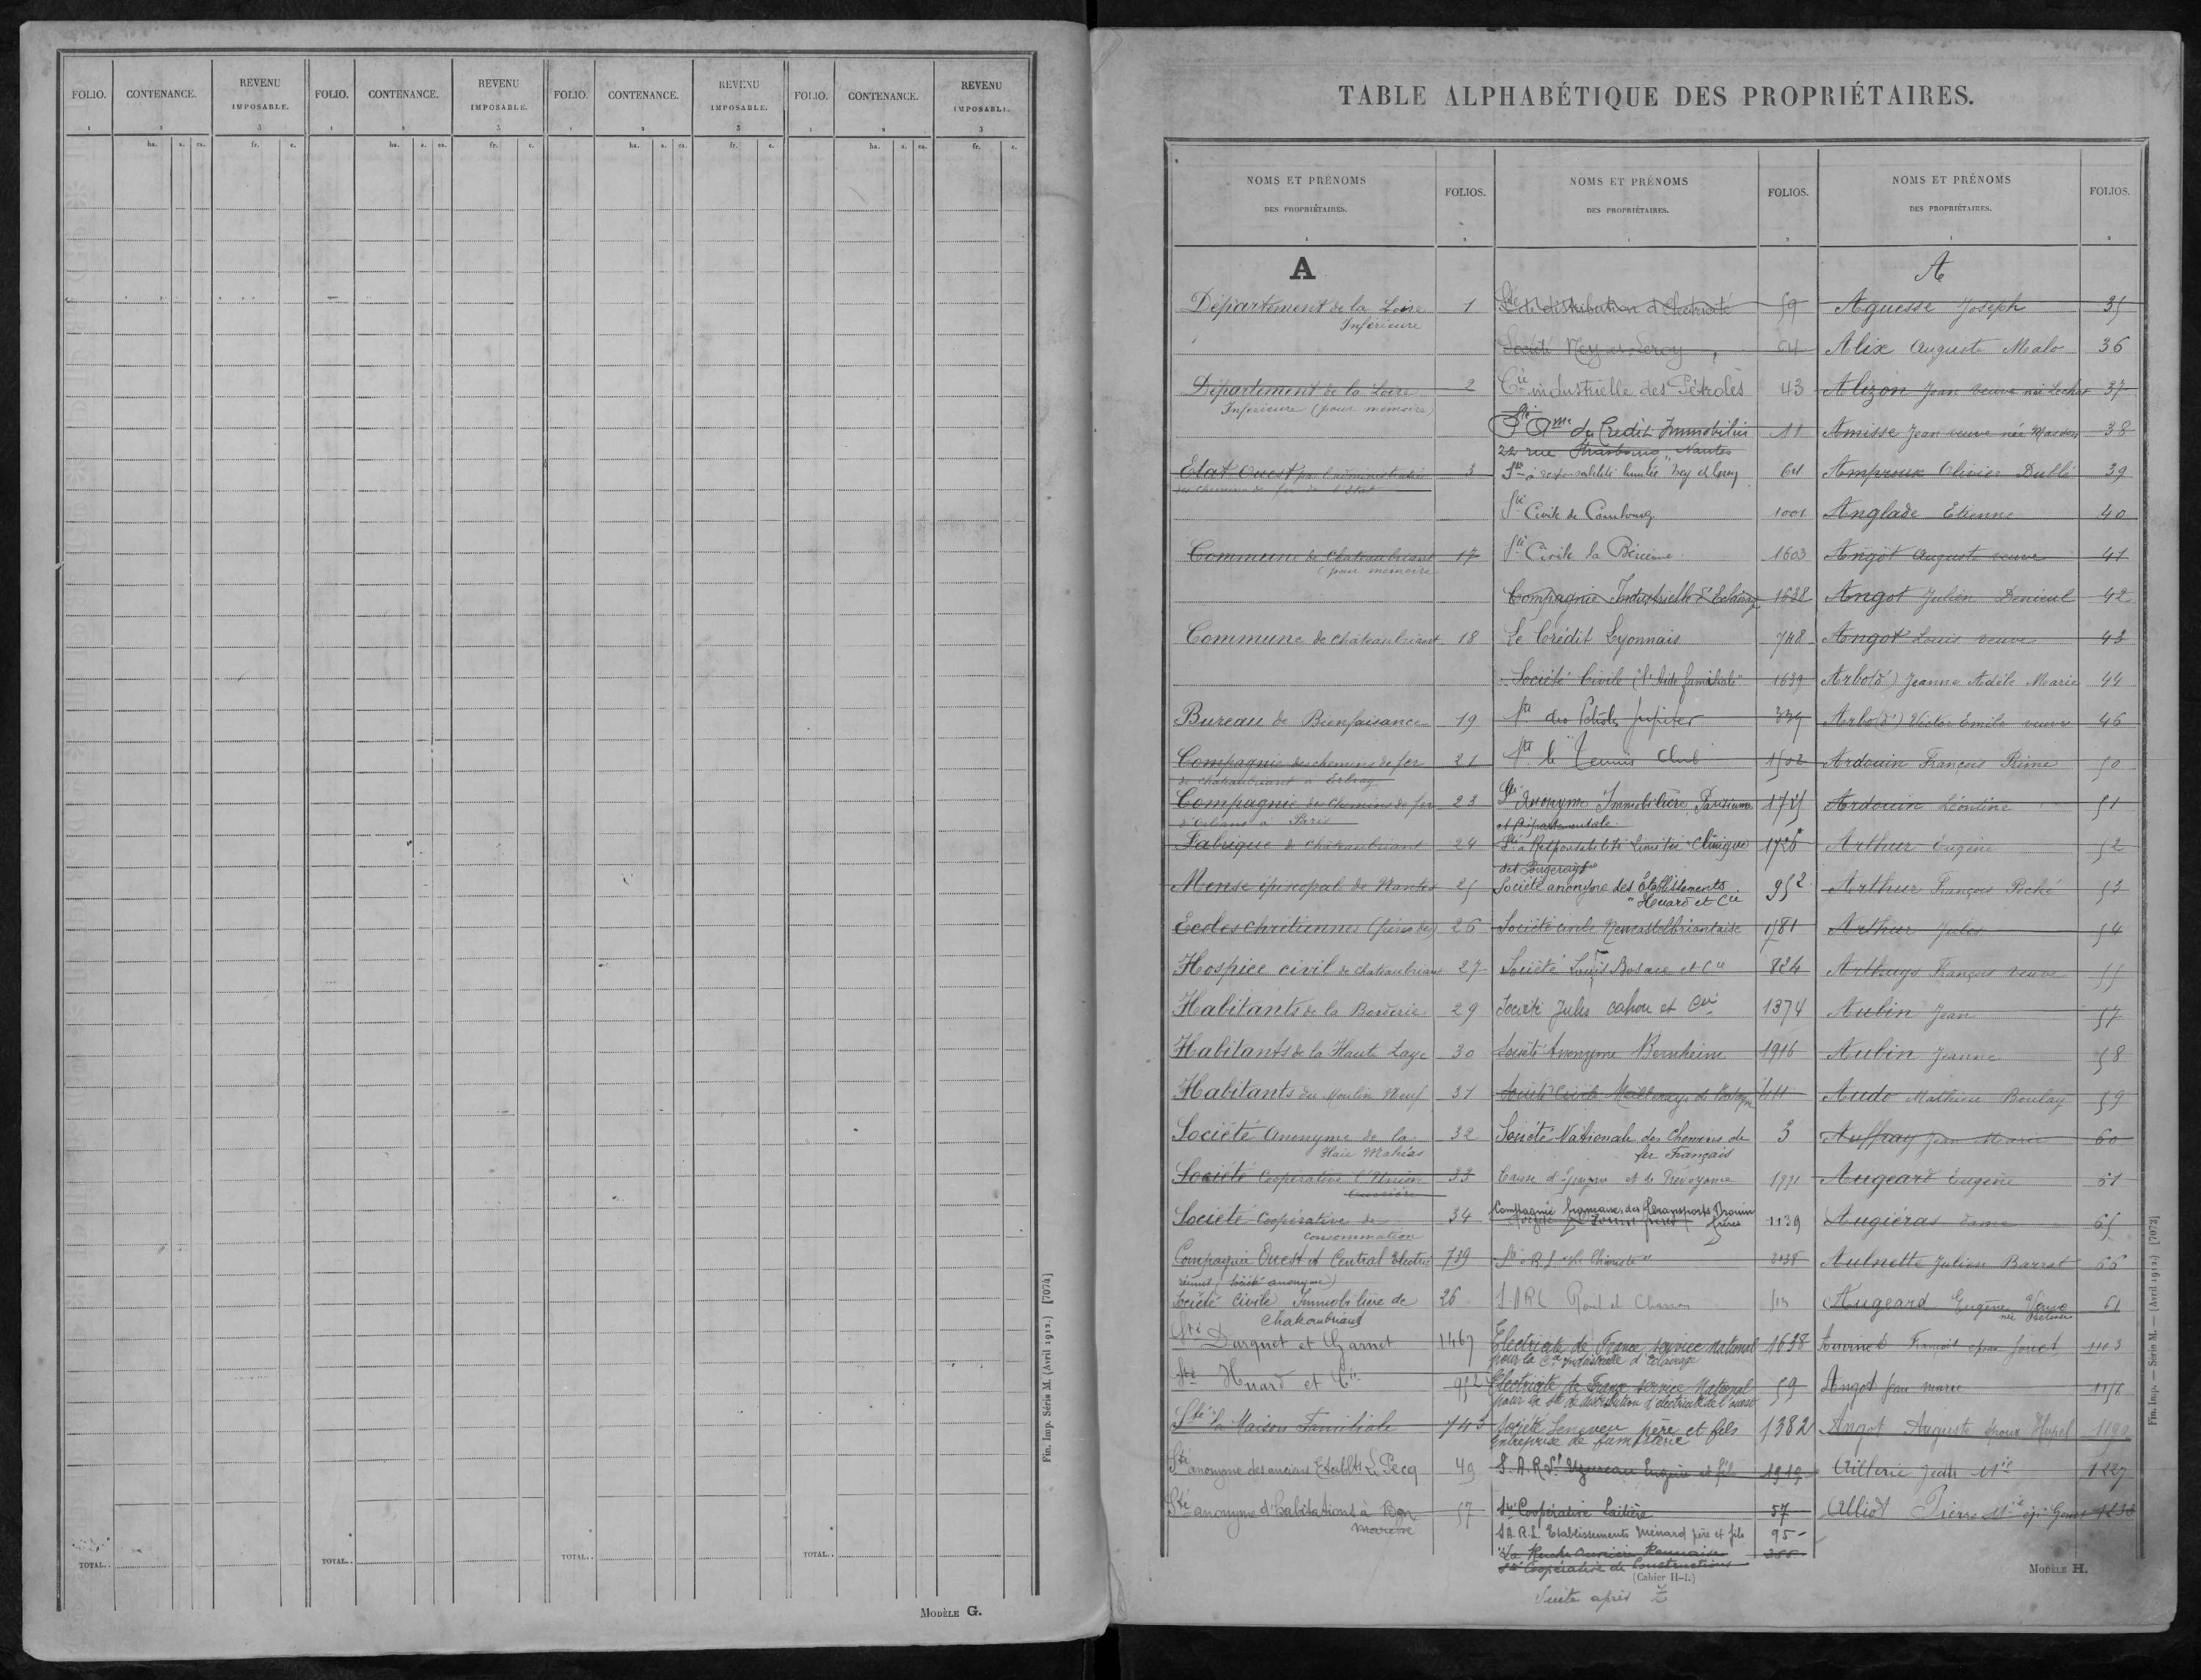 FOLIO. CONTENANCE. REVENU IMPOSABLE. FOLIO. CONTENANCE. REVENU IMPOSABLE. FOLIO. CONTENANCE. REVENU IMPOSABLE. FOLIO. CONTENANCE. REVENU IMPOSABLE.
1 2 3 1 2 3 1 2 3 1 2 3
ha. a. ca. fr. c. ha. a. ca. fr. c. ha. a. ca. fr. c. ha. a. ca. fr. c.
TOTAL.. TOTAL.. TOTAL.. TOTAL..
Fin. Imp. Série M. (Avril 1912.) [7074]
MODÈLE G.
TABLE ALPHABÉTIQUE DES PROPRIÉTAIRES.
NOMS ET PRÉNOMS
DES PROPRIÉTAIRES.
FOLIOS.
1 2
A
Département de la Loire 1
Inférieure
Département de la Loire 2
Inférieure (pour mémoire)
Etat Ouest par l'administration 3
des chemins de fer de l'Etat
Commune de Chateaubriant 17
(pour mémoire
Commune de chateaubriant 18
Bureau de Bienfaisance 19
Compagnie des chemins de fer 21
de chateaubriant à Erbray
Compagnie des chemins de fer 23
d'Orléans à Paris
Fabrique de chateaubriant 24
Mense épiscopal de Nantes 25
Ecoles chrétiennes (frères des) 26
Hospice civil de chateaubriant 27
Habitants de la Borderie 29
Habitants de la Haute Laye 30
Habitants du Moulin Neuf 31
Société Anonyme de la 32
Haie Mahéas
Société Coopérative l'Union 33
Ouvrière
Société Coopérative de 34
Consommation
Compagnie Ouest et Central Electric 739
réunis (Société anonyme)
Société Civile Immobilière de 26
Chateaubriant
Sté Darguet et Garnet 1467
Sté Huard et Cie 952
Sté la Maison Familiale 743
Sté anonyme des anciens Etablts L Pecq 49
Sté anonyme d'habitations à Bon 57
marché
NOMS ET PRÉNOMS
DES PROPRIÉTAIRES.
FOLIOS.
1 2
Sté de distribution d'électricité 59
Société Ney et Leroy 64
Cie industrielle des Pétroles 43
Sté Ame du Crédit Immobilier 11
22 rue Strasbourg Nantes
Sté à responsabilité limitée Ney et Leroy 64
Sté Civile de Combourg 1001
Sté Civile la 1603
Compagnie Industrielle d'Eclairage 1638
Le Crédit Lyonnais 748
Société Civile "l'Aide familiale" 1639
Sté des Pétroles Jupiter 339
Sté le "Tennis Club" 1502
Sté Anonyme Immobilière Parisienne 1725
et Départementale
Sté à Responsabilité Limitée Clinique 1726
des
Société anonyme des Etablissements 952
"Huard et Cie
Société civile Neucastelbriantaise 1581
Société Louis Bosace et Cie 824
Société Jules Cahou et Cie 1374
Société Anonyme Bernheim 1916
Société Civile
Société Nationale des Chemins de 3
fer Français
Caisse d'Epargne et de Prévoyance 1991
Compagnie française des Transports Drouin 1139
frères
Sté A.R.L.
S.A.R.L. et
Electricité de France service national 1638
pour la Cie Industrielle d'Eclairage
Electricité de France service National 59
pour la Sté de distribution d'électricité de l'ouest
Société Leneveu père et fils 1382
Entreprise de fumisterie
S.A.R.L. Uzureau Eugène et fils 1919
Sté Coopérative Laitière 57
S.A.R.L. Etablissements Ménard père et fils 95
"La Ruche Ouvrière Rennaise
Sté Coopérative de Constructions
(Cahier H-I.)
Suite après Z
NOMS ET PRÉNOMS
DES PROPRIÉTAIRES.
FOLIOS.
1 2
A
Aguesse Joseph 35
Alix Auguste Malo 36
Alizon Jean veuve née Lechat 37
Amisse Jean veuve née 38
Amproux Olivier Dublé 39
Anglade Etienne 40
Angot Auguste veuve 41
Angot Julien Denieul 42
Angot Louis veuve 43
Arbo (d') Jeanne Adèle Marie 44
Arbo (d') Victor Emile veuve 46
Ardouin François Prime 50
Ardouin Léontine 51
Arthur Eugène 52
Arthur François Poché 53
Arthur Jules 54
Arthuys François veuve 55
Aubin Jean 57
Aubin Jeanne 58
Audo Mathieu Boulay 59
Auffray Jean Marie 60
Augeard Eugène 61
Augiéras dame 65
Aulnette Julien Barrat 66
Augeard Eugène Veuve 61
née
Auvinet François époux Jouet 1103
Angot Jean Marie 1156
Angot Auguste époux Hupel 1199
Aillerie Jean Mie 1227
Alliot Pierre Mie ép. 1230
Fin. Imp. — Série M. — (Avril 1912.) [7073]
MODÈLE H.